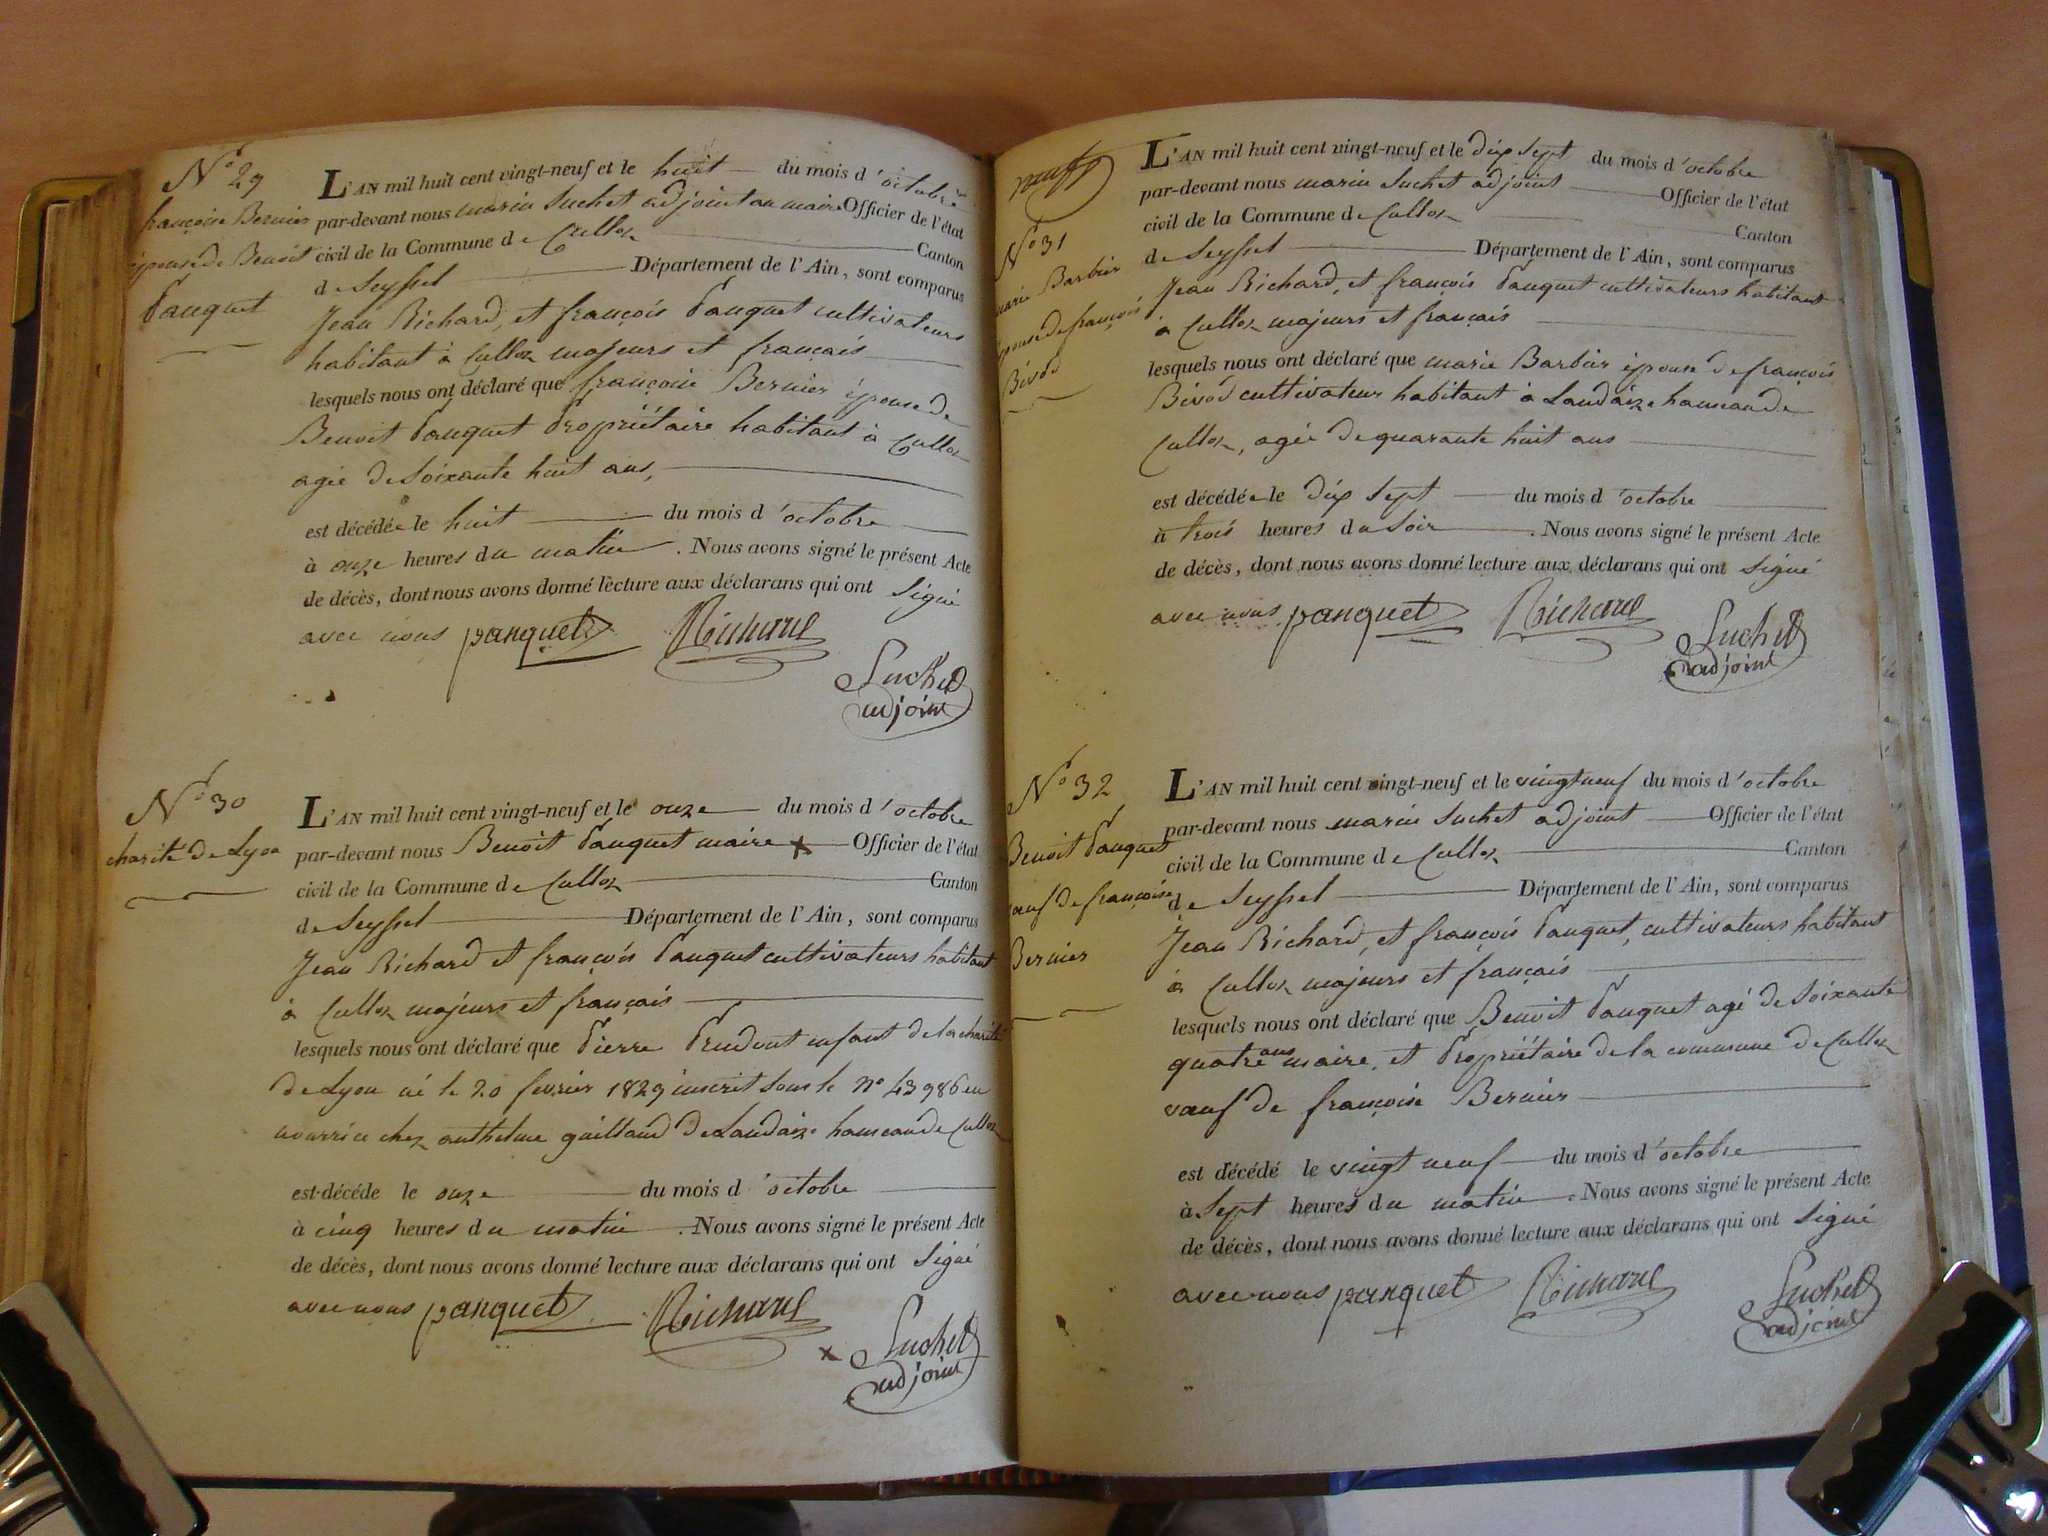 N° 29
françoise Bernier
épouse de Benoit
Pauquet
L'AN mil huit cent vingt-neuf et le huit du mois d'octobre
par-devant nous marin Suchet adjoint au maire Officier de l'état
civil de la Commune de Culloz Canton
de Seyssel Département de l'Ain, sont comparus
Jean Richard, et françois Pauquet cultivateurs
habitant à Culloz majeurs et français
lesquels nous ont déclaré que françoise Bernier épouse de
Benoit Pauquet Propriétaire habitant à Culloz
agée de Soixante huit ans,
est décédée le huit du mois d'octobre
à onze heures du matin. Nous avons signé le présent Acte
de décès, dont nous avons donné lecture aux déclarans qui ont Signé
avec nous pauquet Richard
Suchet
adjoint
N° 30
charité de Lyon
L'AN mil huit cent vingt-neuf et le onze du mois d'octobre
par-devant nous Benoit Pauquet maire x Officier de l'état
civil de la Commune de Culloz Canton
de Seyssel Département de l'Ain, sont comparus
Jean Richard et françois Pauquet cultivateurs habitant
à Culloz majeurs et français
lesquels nous ont déclaré que Pierre Prudent enfant de la charité
de Lyon né le 20 fevrier 1829 inscrit sous le n° 43986 en
nourrice chez anthelme guilland de Landaize hameau de Culloz
est décédé le onze du mois d'octobre
à cinq heures du matin. Nous avons signé le présent Acte
de décès, dont nous avons donné lecture aux déclarans qui ont Signé
avec nous pauquet Richard
x Suchet
adjoint
neuf
N° 31
marie Barbier
épouse de françois
Bivod
L'AN mil huit cent vingt-neuf et le dix sept du mois d'octobre
par-devant nous marin Suchet adjoint Officier de l'état
civil de la Commune de Culloz Canton
de Seyssel Département de l'Ain, sont comparus
Jean Richard, et françois Pauquet cultivateurs habitant
à Culloz majeurs et français
lesquels nous ont déclaré que marie Barbier épouse de françois
Bivod cultivateur habitant à Landaize hameau de
Culloz, agée de quarante huit ans
est décédée le dix sept du mois d'octobre
à trois heures du Soir. Nous avons signé le présent Acte
de décès, dont nous avons donné lecture aux déclarans qui ont signé
avec nous pauquet Richard
Suchet
adjoint
N° 32
Benoit Pauquet
veuf de françoise
Bernier
L'AN mil huit cent vingt-neuf et le vingt neuf du mois d'octobre
par-devant nous marin Suchet adjoint Officier de l'état
civil de la Commune de Culloz Canton
de Seyssel Département de l'Ain, sont comparus
Jean Richard, et françois Pauquet, cultivateurs habitant
à Culloz majeurs et français
lesquels nous ont déclaré que Benoit Pauquet agé de Soixante
quatre ans maire, et Propriétaire de la commune de Culloz
vœuf de françoise Bernier
est décédé le vingt neuf du mois d'octobre
à Sept heures du matin. Nous avons signé le présent Acte
de décès, dont nous avons donné lecture aux déclarans qui ont Signé
avec nous pauquet Richard
Suchet
adjoint